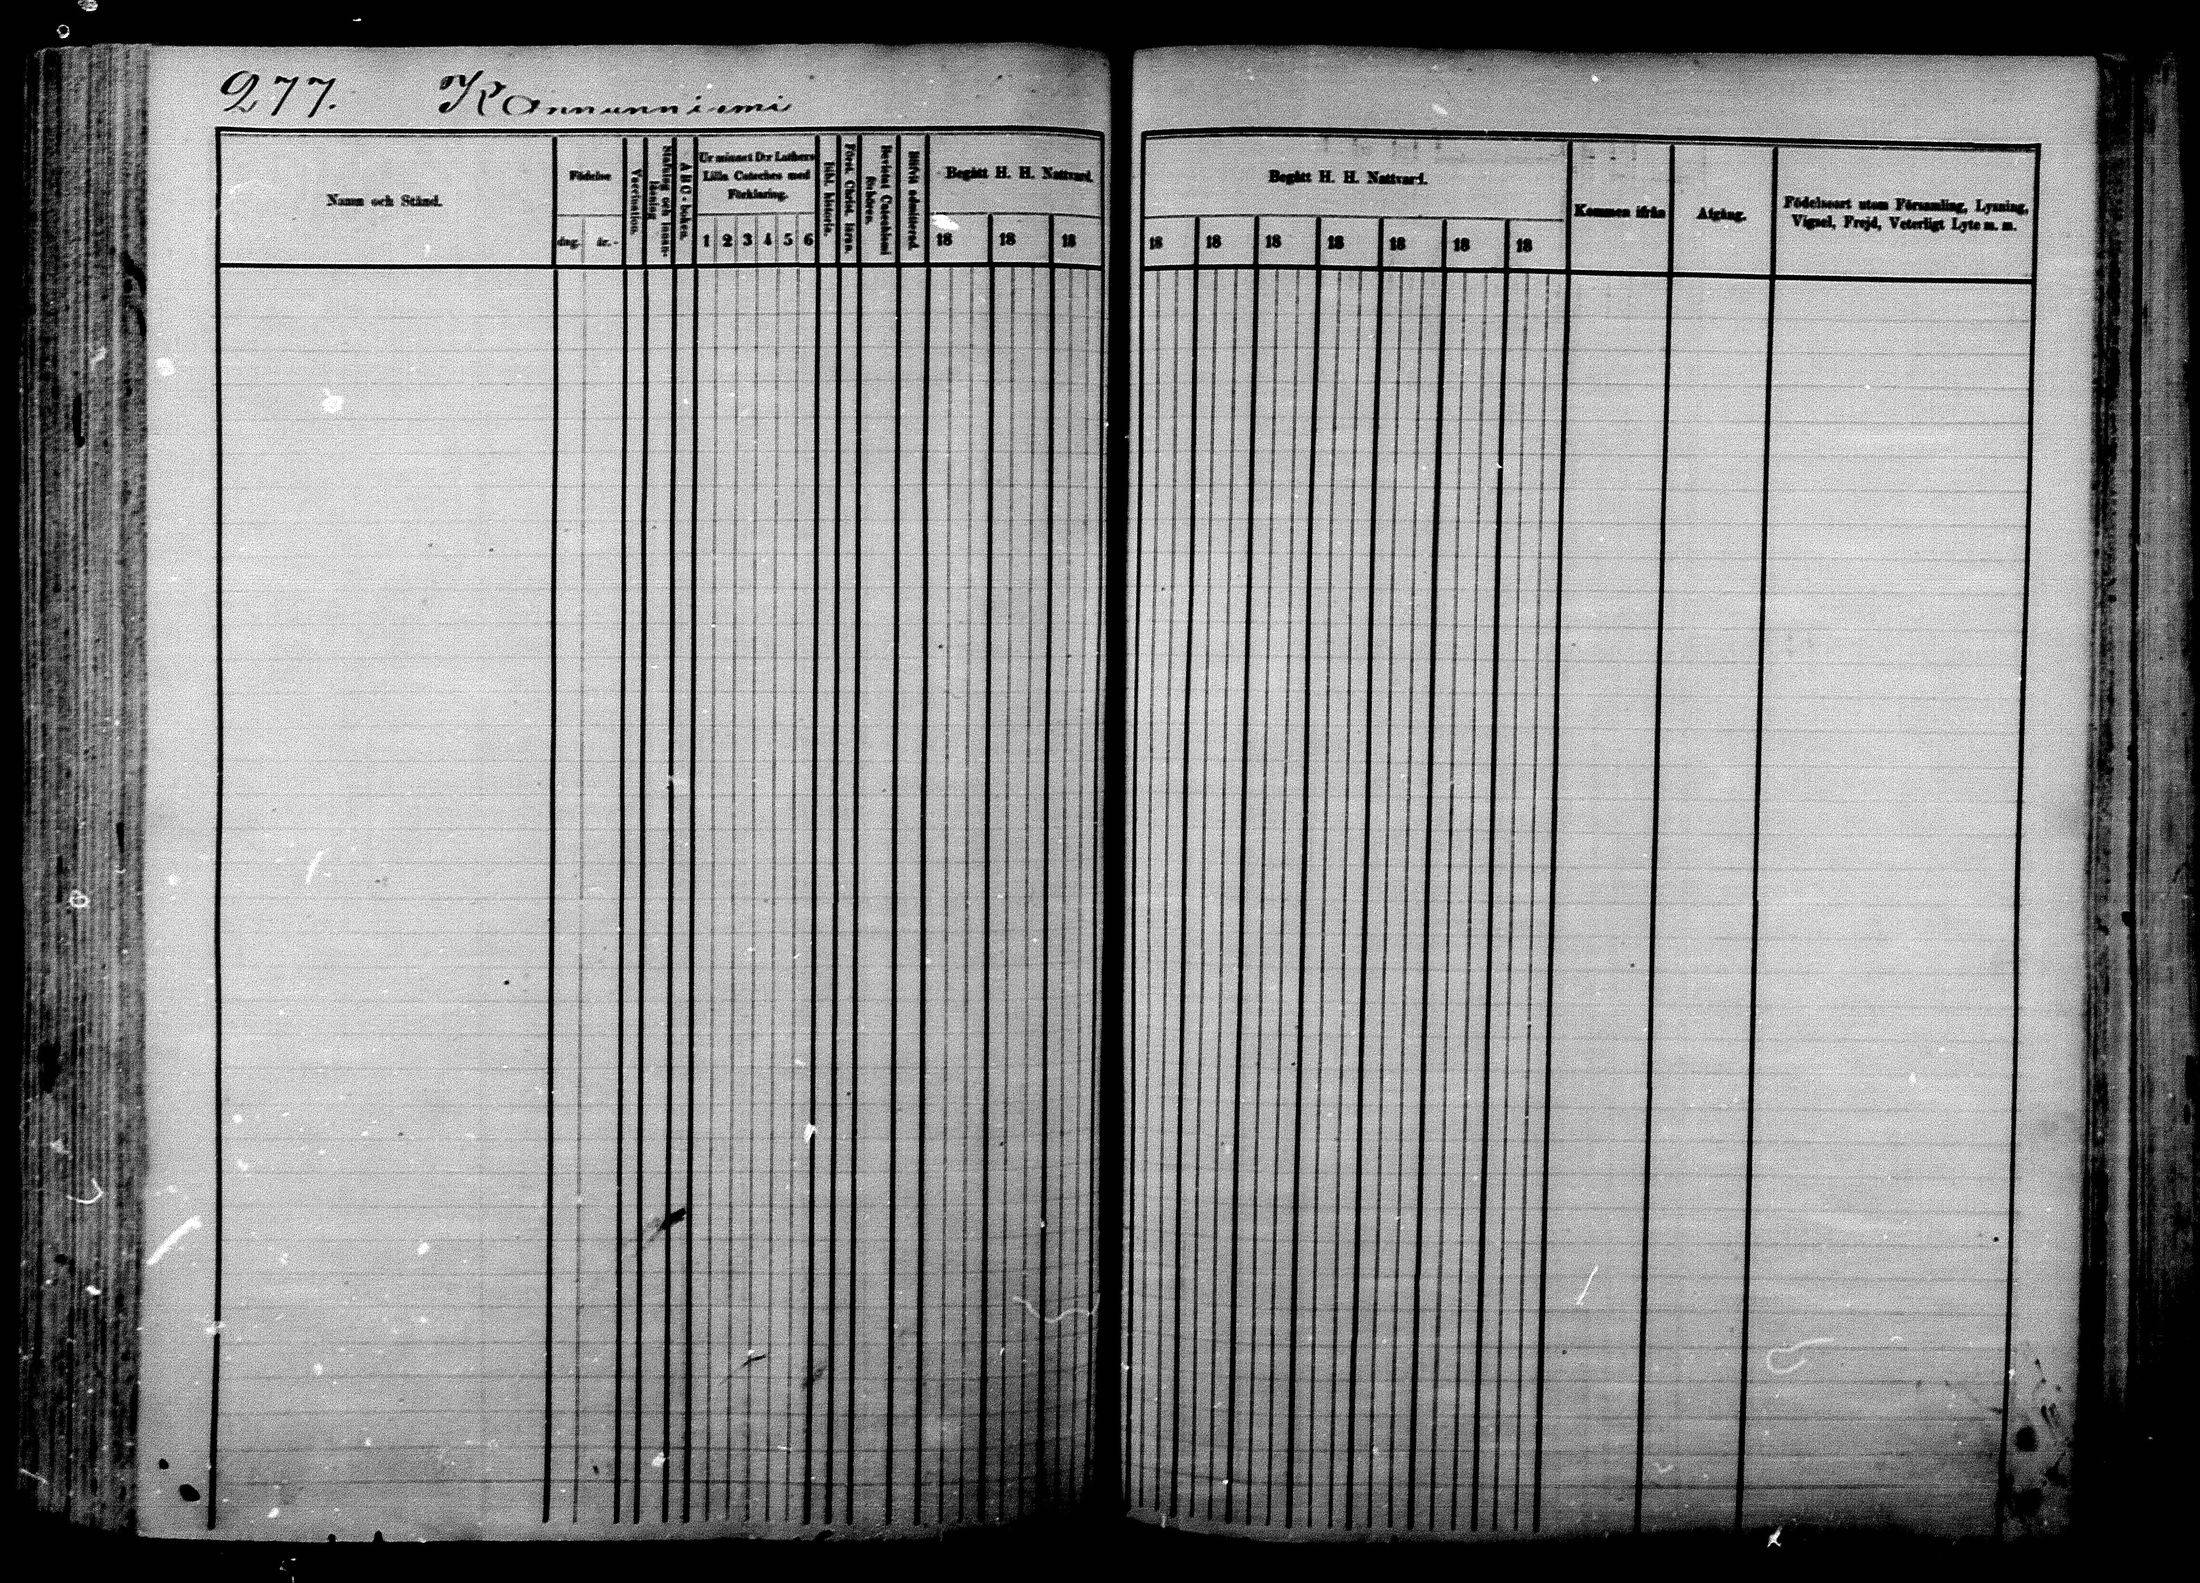 277. Konnunniemi
Namn och Stånd.
Födelse
dag.
år.
Vaccination.
Stafning och innan-
läsning
A B C - boken.
Ur minnet D:r Luthers
Lilla Cateches med
Förklaring.
1 2 3 4 5 6
bibl. historia.
Först. Christ. läran
Bevistat Catechismi
förhören.
Blifvit admitterad.
Begått H. H. Nattvard.
18 18 18
Begått H. H. Nattvard.
18 18 18 18 18 18 18
Kommen ifrån
Afgång.
Födelseort utom Församling, Lysning,
Vigsel, Frejd, Veterligt Lyte m. m.